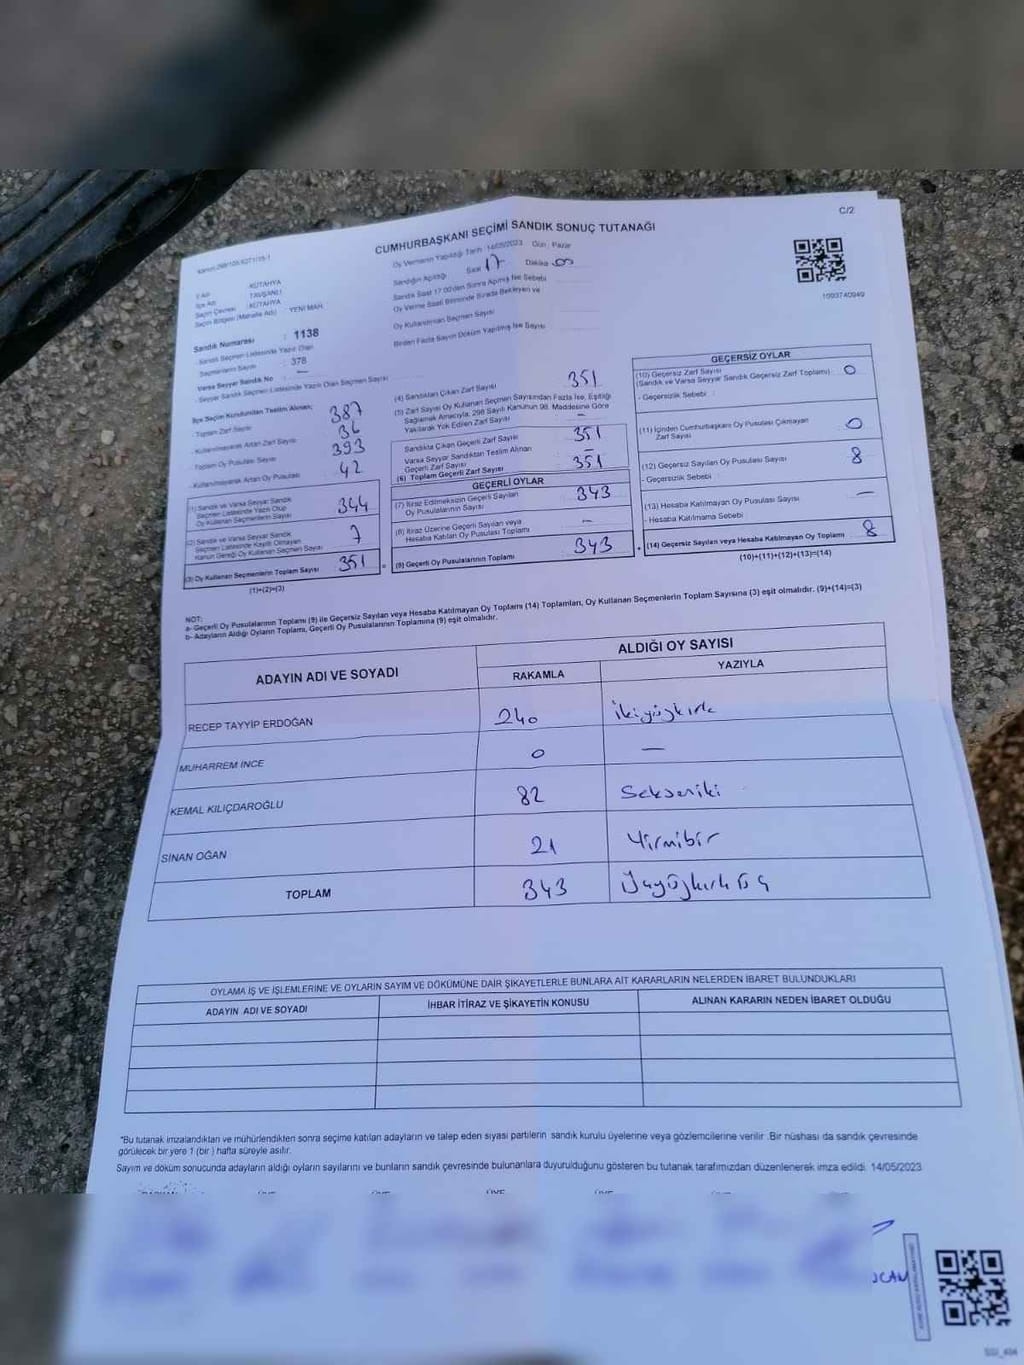 C/2
CUMHURBAŞKANI SEÇİMİ SANDIK SONUÇ TUTANAĞI
Oy Vermenin Yapıldığı Tarih : 14/05/2023 Gün : Pazar
Sandığın Açıldığı Saat 17 Dakika 00
Sandık Saat 17:00'den Sonra Açılmış İse Sebebi
Oy Verme Saati Bitiminde Sırada Bekleyen ve
Oy Kullandırılan Seçmen Sayısı
Birden Fazla Sayım Döküm Yapılmış İse Sayısı
1093740949
İl Adı : KÜTAHYA
İlçe Adı : TAVŞANLI
Seçim Çevresi : KÜTAHYA
Seçim Bölgesi (Mahalle Adı) : YENİ MAH.
Sandık Numarası : 1138
- Sandık Seçmen Listesinde Yazılı Olan
Seçmenlerin Sayısı : 378
Varsa Seyyar Sandık No : —
- Seyyar Sandık Seçmen Listesinde Yazılı Olan Seçmen Sayısı
İlçe Seçim Kurulundan Teslim Alınan;
- Toplam Zarf Sayısı 387
- Kullanılmayarak Artan Zarf Sayısı 36
- Toplam Oy Pusulası Sayısı 393
- Kullanılmayarak Artan Oy Pusulası 42
(1) Sandık ve Varsa Seyyar Sandık
Seçmen Listesinde Yazılı Olup
Oy Kullanan Seçmenlerin Sayısı 344
(2) Sandık ve Varsa Seyyar Sandık
Seçmen Listesinde Kayıtlı Olmayan
Kanun Gereği Oy Kullanan Seçmen Sayısı 7
(3) Oy Kullanan Seçmenlerin Toplam Sayısı 351
(1)+(2)=(3)
(4) Sandıktan Çıkan Zarf Sayısı 351
(5) Zarf Sayısı Oy Kullanan Seçmen Sayısından Fazla İse, Eşitliği
Sağlamak Amacıyla, 298 Sayılı Kanunun 98. Maddesine Göre
Yakılarak Yok Edilen Zarf Sayısı —
Sandıkta Çıkan Geçerli Zarf Sayısı 351
Varsa Seyyar Sandıktan Teslim Alınan
Geçerli Zarf Sayısı —
(6) Toplam Geçerli Zarf Sayısı 351
GEÇERLİ OYLAR
(7) İtiraz Edilmeksizin Geçerli Sayılan
Oy Pusulalarının Sayısı 343
(8) İtiraz Üzerine Geçerli Sayılan veya
Hesaba Katılan Oy Pusulası Toplamı —
(9) Geçerli Oy Pusulalarının Toplamı 343
GEÇERSİZ OYLAR
(10) Geçersiz Zarf Sayısı
(Sandık ve Varsa Seyyar Sandık Geçersiz Zarf Toplamı) 0
- Geçersizlik Sebebi :
(11) İçinden Cumhurbaşkanı Oy Pusulası Çıkmayan
Zarf Sayısı 0
(12) Geçersiz Sayılan Oy Pusulası Sayısı 8
- Geçersizlik Sebebi :
(13) Hesaba Katılmayan Oy Pusulası Sayısı —
- Hesaba Katılmama Sebebi :
(14) Geçersiz Sayılan veya Hesaba Katılmayan Oy Toplamı 8
(10)+(11)+(12)+(13)=(14)
NOT:
a- Geçerli Oy Pusulalarının Toplamı (9) ile Geçersiz Sayılan veya Hesaba Katılmayan Oy Toplamı (14) Toplamları, Oy Kullanan Seçmenlerin Toplam Sayısına (3) eşit olmalıdır. (9)+(14)=(3)
b- Adayların Aldığı Oyların Toplamı, Geçerli Oy Pusulalarının Toplamına (9) eşit olmalıdır.
ADAYIN ADI VE SOYADI
ALDIĞI OY SAYISI
RAKAMLA YAZIYLA
RECEP TAYYİP ERDOĞAN 240 İkiyüzkırk
MUHARREM İNCE 0 —
KEMAL KILIÇDAROĞLU 82 Sekseniki
SİNAN OĞAN 21 Yirmibir
TOPLAM 343 Üçyüzkırküç
OYLAMA İŞ VE İŞLEMLERİNE VE OYLARIN SAYIM VE DÖKÜMÜNE DAİR ŞİKAYETLERLE BUNLARA AİT KARARLARIN NELERDEN İBARET BULUNDUKLARI
ADAYIN ADI VE SOYADI İHBAR İTİRAZ VE ŞİKAYETİN KONUSU ALINAN KARARIN NEDEN İBARET OLDUĞU
*Bu tutanak imzalandıktan ve mühürlendikten sonra seçime katılan adayların ve talep eden siyasi partilerin sandık kurulu üyelerine veya gözlemcilerine verilir .Bir nüshası da sandık çevresinde
görülecek bir yere 1 (bir ) hafta süreyle asılır.
Sayım ve döküm sonucunda adayların aldığı oyların sayılarını ve bunların sandık çevresinde bulunanlara duyurulduğunu gösteren bu tutanak tarafımızdan düzenlenerek imza edildi. 14/05/2023
ÜYE ÜYE ÜYE ÜYE